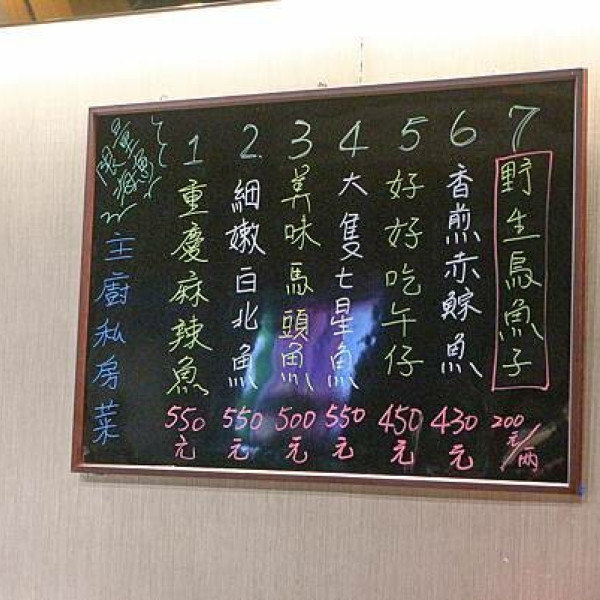 限量
主廚私房菜
1 重慶麻辣魚 550元
2 細嫩白北魚 550元
3 美味馬頭魚 500元
4 大隻七星魚 550元
5 好好吃午仔 450元
6 香煎赤鯮魚 430元
7 野生烏魚子 200元/兩